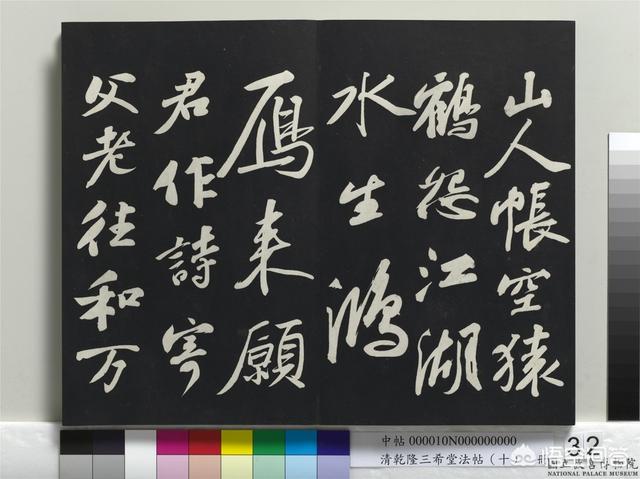 山人帳空猿
鶴怨江湖
水生鴻
鴈来願
君作詩寄
父老往和万
中帖 000010N000000000
32
清乾隆三希堂法帖（十
冊
國立故宮博物院
NATIONAL PALACE MUSEUM
悟空问答